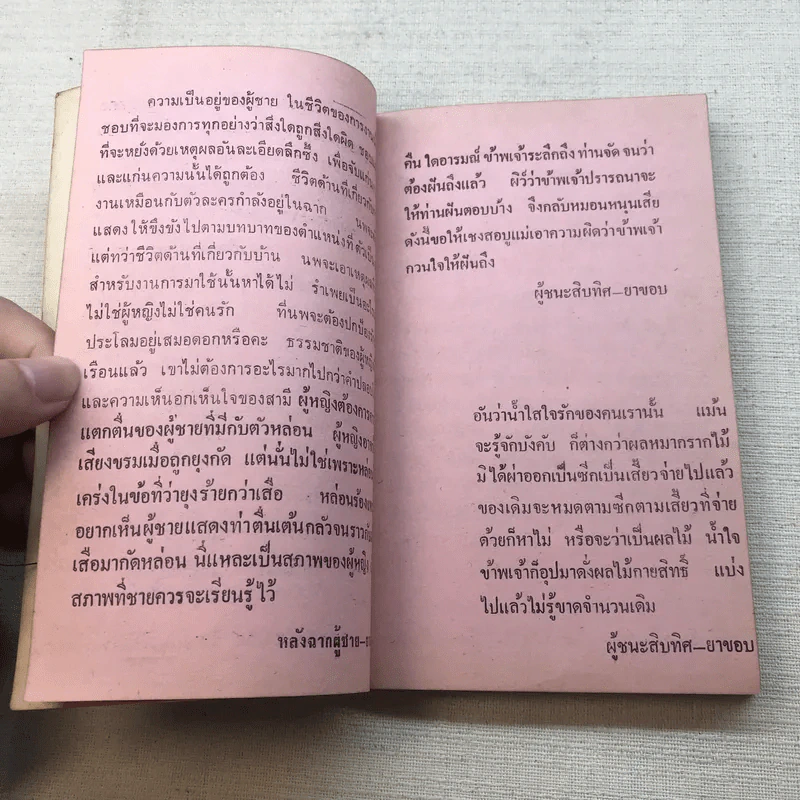 ความเป็นอยู่ของผู้ชาย ในชีวิตของการงาน
ชอบที่จะมองการทุกอย่างว่าสิ่งใดถูกสิ่งใดผิด
ที่จะหยั่งด้วยเหตุผลอันละเอียดลึกซึ้ง เพื่อจับแก่น
และแก่นความนั้นได้ถูกต้อง ชีวิตด้านที่เกี่ยว
งานเหมือนกับตัวละครกำลังอยู่ในฉาก
แสดงให้ขึงขังไปตามบทบาทของตำแหน่งที่
แต่ทว่าชีวิตด้านที่เกี่ยวกับบ้าน นพจะเอาเหตุ
สำหรับงานการมาใช้นั้นหาได้ไม่ รำเพยเป็น
ไม่ใช่ผู้หญิงไม่ใช่คนรัก ที่นพจะต้องปกป้อง
ประโลมอยู่เสมอดอกหรือคะ ธรรมชาติของผู้หญิง
เรือนแล้ว เขาไม่ต้องการอะไรมากไปกว่าคำ
และความเห็นอกเห็นใจของสามี ผู้หญิงต้องการ
แตกตื่นของผู้ชายที่มีกับตัวหล่อน
เสียงขรมเมื่อถูกยุงกัด แต่นั่นไม่ใช่เพราะหล่อน
เคร่งในข้อที่ว่ายุงร้ายกว่าเสือ
อยากเห็นผู้ชายแสดงท่าตื่นเต้นกลัวจนราวกับ
เสือมากัดหล่อน นี่แหละเป็นสภาพของผู้หญิง
สภาพที่ชายควรจะเรียนรู้ไว้
หลังฉากผู้ชาย—
คืน ใดอารมณ์ ข้าพเจ้าระลึกถึง ท่านจัด จนว่า
ต้องฝันถึงแล้ว ผิว์ว่าข้าพเจ้าปรารถนาจะ
ให้ท่านฝันตอบบ้าง จึงกลับหมอนหนุนเสีย
ดังนี้ขอให้เชงสอบูแม่เอาความผิดว่าข้าพเจ้า
กวนใจให้ฝันถึง
ผู้ชนะสิบทิศ—ยาขอบ
อันว่าน้ำใสใจรักของคนเรานั้น แม้น
จะรู้จักบังคับ ก็ต่างกว่าผลหมากรากไม้
มิได้ผ่าออกเป็นซีกเป็นเสี้ยวจ่ายไปแล้ว
ของเดิมจะหมดตามซีกตามเสี้ยวที่จ่าย
ด้วยก็หาไม่ หรือจะว่าเป็นผลไม้ น้ำใจ
ข้าพเจ้าก็อุปมาดั่งผลไม้กายสิทธิ์ แบ่ง
ไปแล้วไม่รู้ขาดจำนวนเดิม
ผู้ชนะสิบทิศ—ยาขอบ